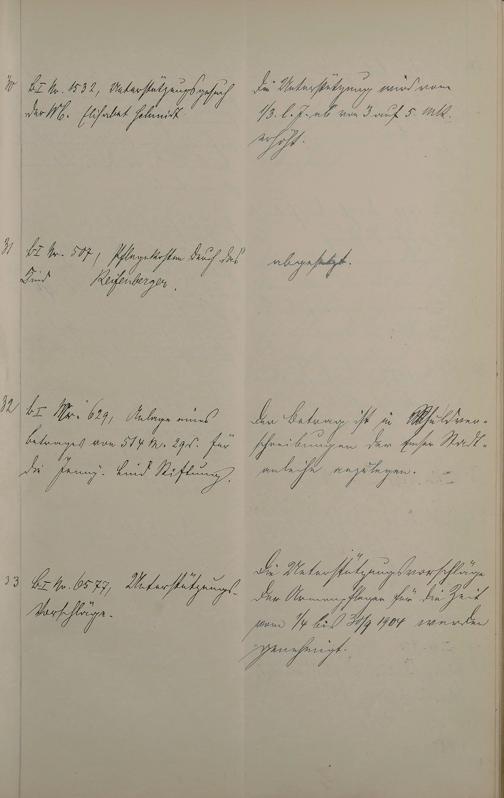 30
b I Nr. 1532, Unterstützungsgesuch
der Wb. Elisabet Schmidt
Die Unterstützung wird vom
1/3. l. J. ab von 3 auf 5 Mk.
erhöht.
31
b I Nr. 507, Pflegekosten durch das
Kind Reifenberger.
abgesetzt.
32
b I Nr. 629, Anlage eines
Betrages von 514 M. 29 d. für
die Stiftung.
Der Betrag ist in Schuldver-
schreibungen der Emser Stadt-
anleihe anzulegen.
33
b I Nr. 6577, Unterstützungs-
Vorschläge.
Die Unterstützungsvorschläge
der Armenpfleger für die Zeit
vom 1/4 bis 30/9 1904 werden
genehmigt.